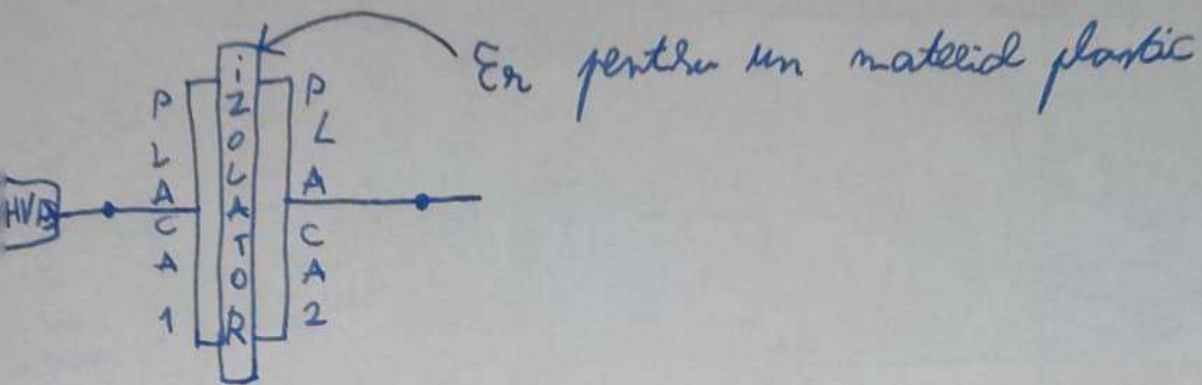 εr pentru un material plastic
PLACA 1
iZOLATOR
PLACA 2